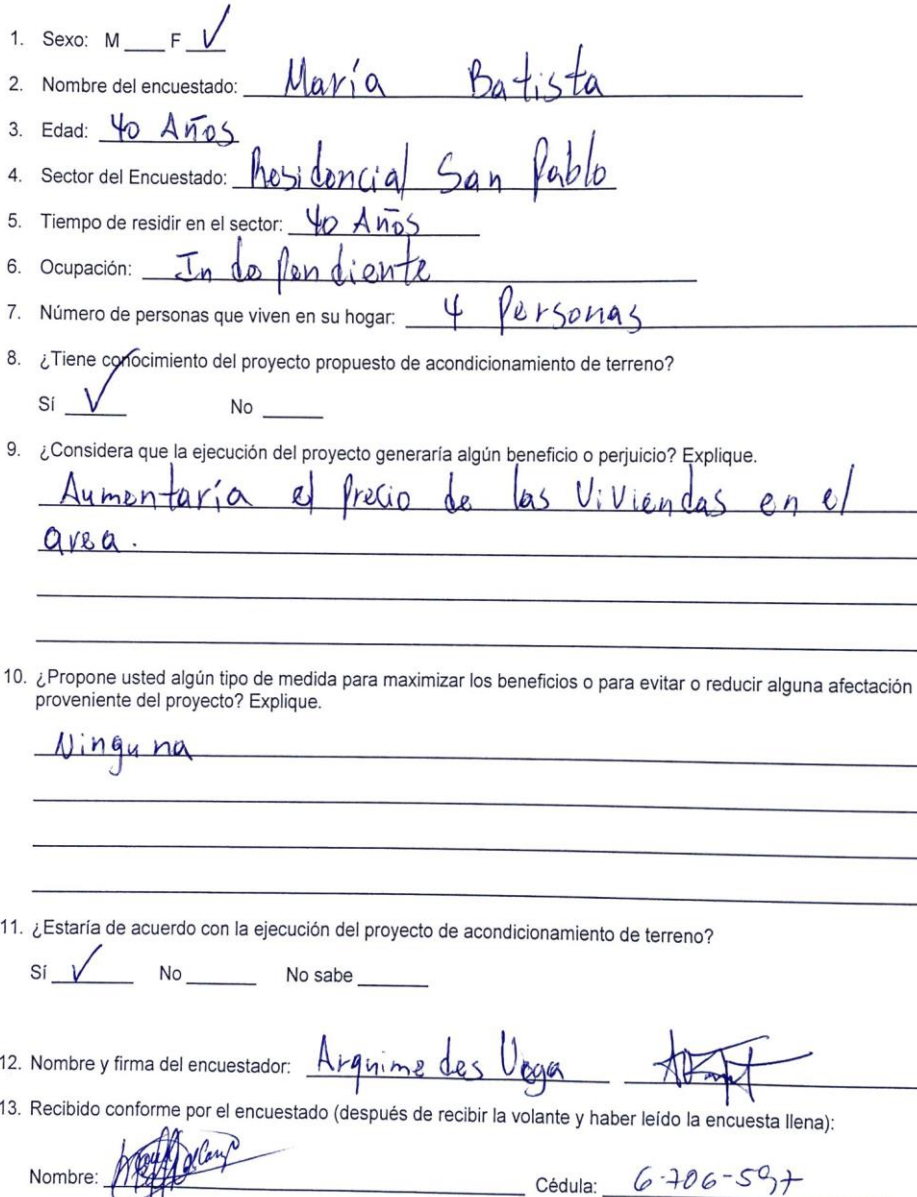 1. Sexo: M ____ F √
2. Nombre del encuestado: María Batista
3. Edad: 40 Años
4. Sector del Encuestado: Residencial San Pablo
5. Tiempo de residir en el sector: 40 Años
6. Ocupación: Independiente
7. Número de personas que viven en su hogar: 4 Personas
8. ¿Tiene conocimiento del proyecto propuesto de acondicionamiento de terreno?
Sí √ No ____
9. ¿Considera que la ejecución del proyecto generaría algún beneficio o perjuicio? Explique.
Aumentaría el Precio de las Viviendas en el
area.
10. ¿Propone usted algún tipo de medida para maximizar los beneficios o para evitar o reducir alguna afectación
proveniente del proyecto? Explique.
Ninguna
11. ¿Estaría de acuerdo con la ejecución del proyecto de acondicionamiento de terreno?
Sí √ No ____ No sabe ____
12. Nombre y firma del encuestador: Arquimedes Vega
13. Recibido conforme por el encuestado (después de recibir la volante y haber leído la encuesta llena):
Nombre: Cédula: 6-706-597